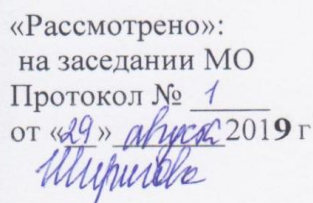 «Рассмотрено»:
на заседании МО
Протокол № 1
от «29» август 2019 г